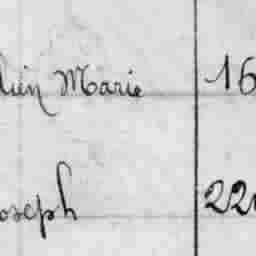 Marie 16
oseph 22